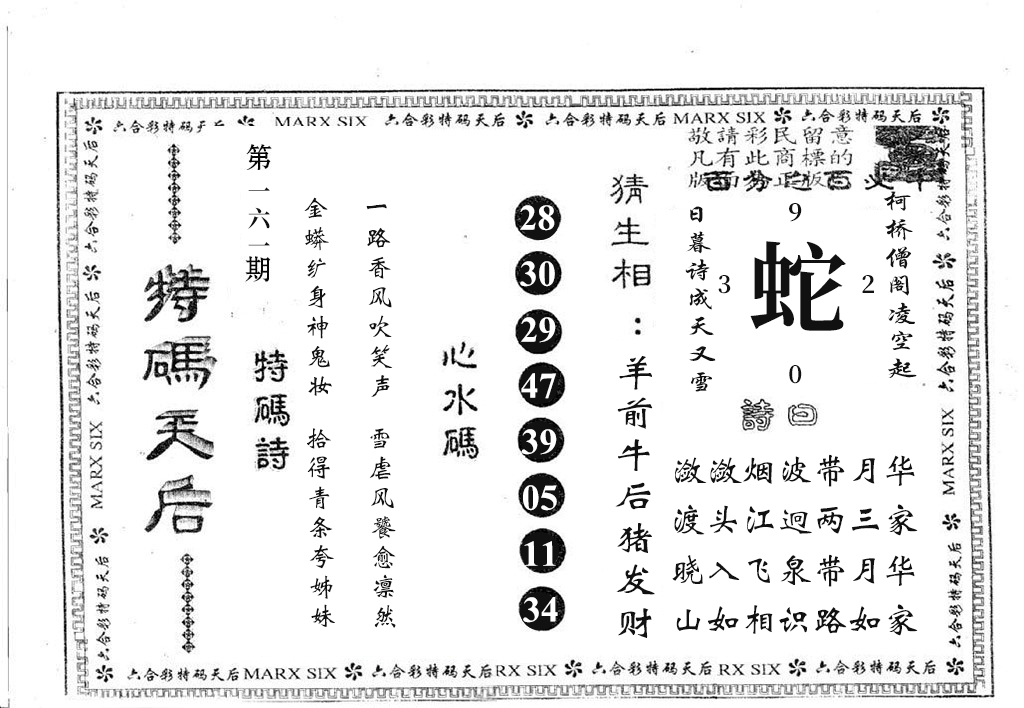 六合彩特码天后 MARX SIX 六合彩特码天后 六合彩特码天后 MARX SIX 六合彩特码天后
敬請彩民留意
凡有此商標的
版面为正版
特碼天后
第一六一期
特碼詩
金蟒纩身神鬼妆 拾得青条夸姊妹
一路香风吹笑声 雪虐风饕愈凛然
心水碼
28
30
29
47
39
05
11
34
猜生相：羊前牛后猪发财
日暮诗成天又雪
9
3
蛇
2
0
柯桥僧阁凌空起
詩曰
潋潋烟波带月华
渡头江迥两三家
晓入飞泉带月华
山如相识路如家
六合彩特码天后
MARX SIX
六合彩特码天后
六合彩特码天后
六合彩特码天后
六合彩特码天后
MARX SIX
六合彩特码天后
六合彩特码天后 MARX SIX 六合彩特码天后 RX SIX 六合彩特码天后 RX SIX 六合彩特码天后